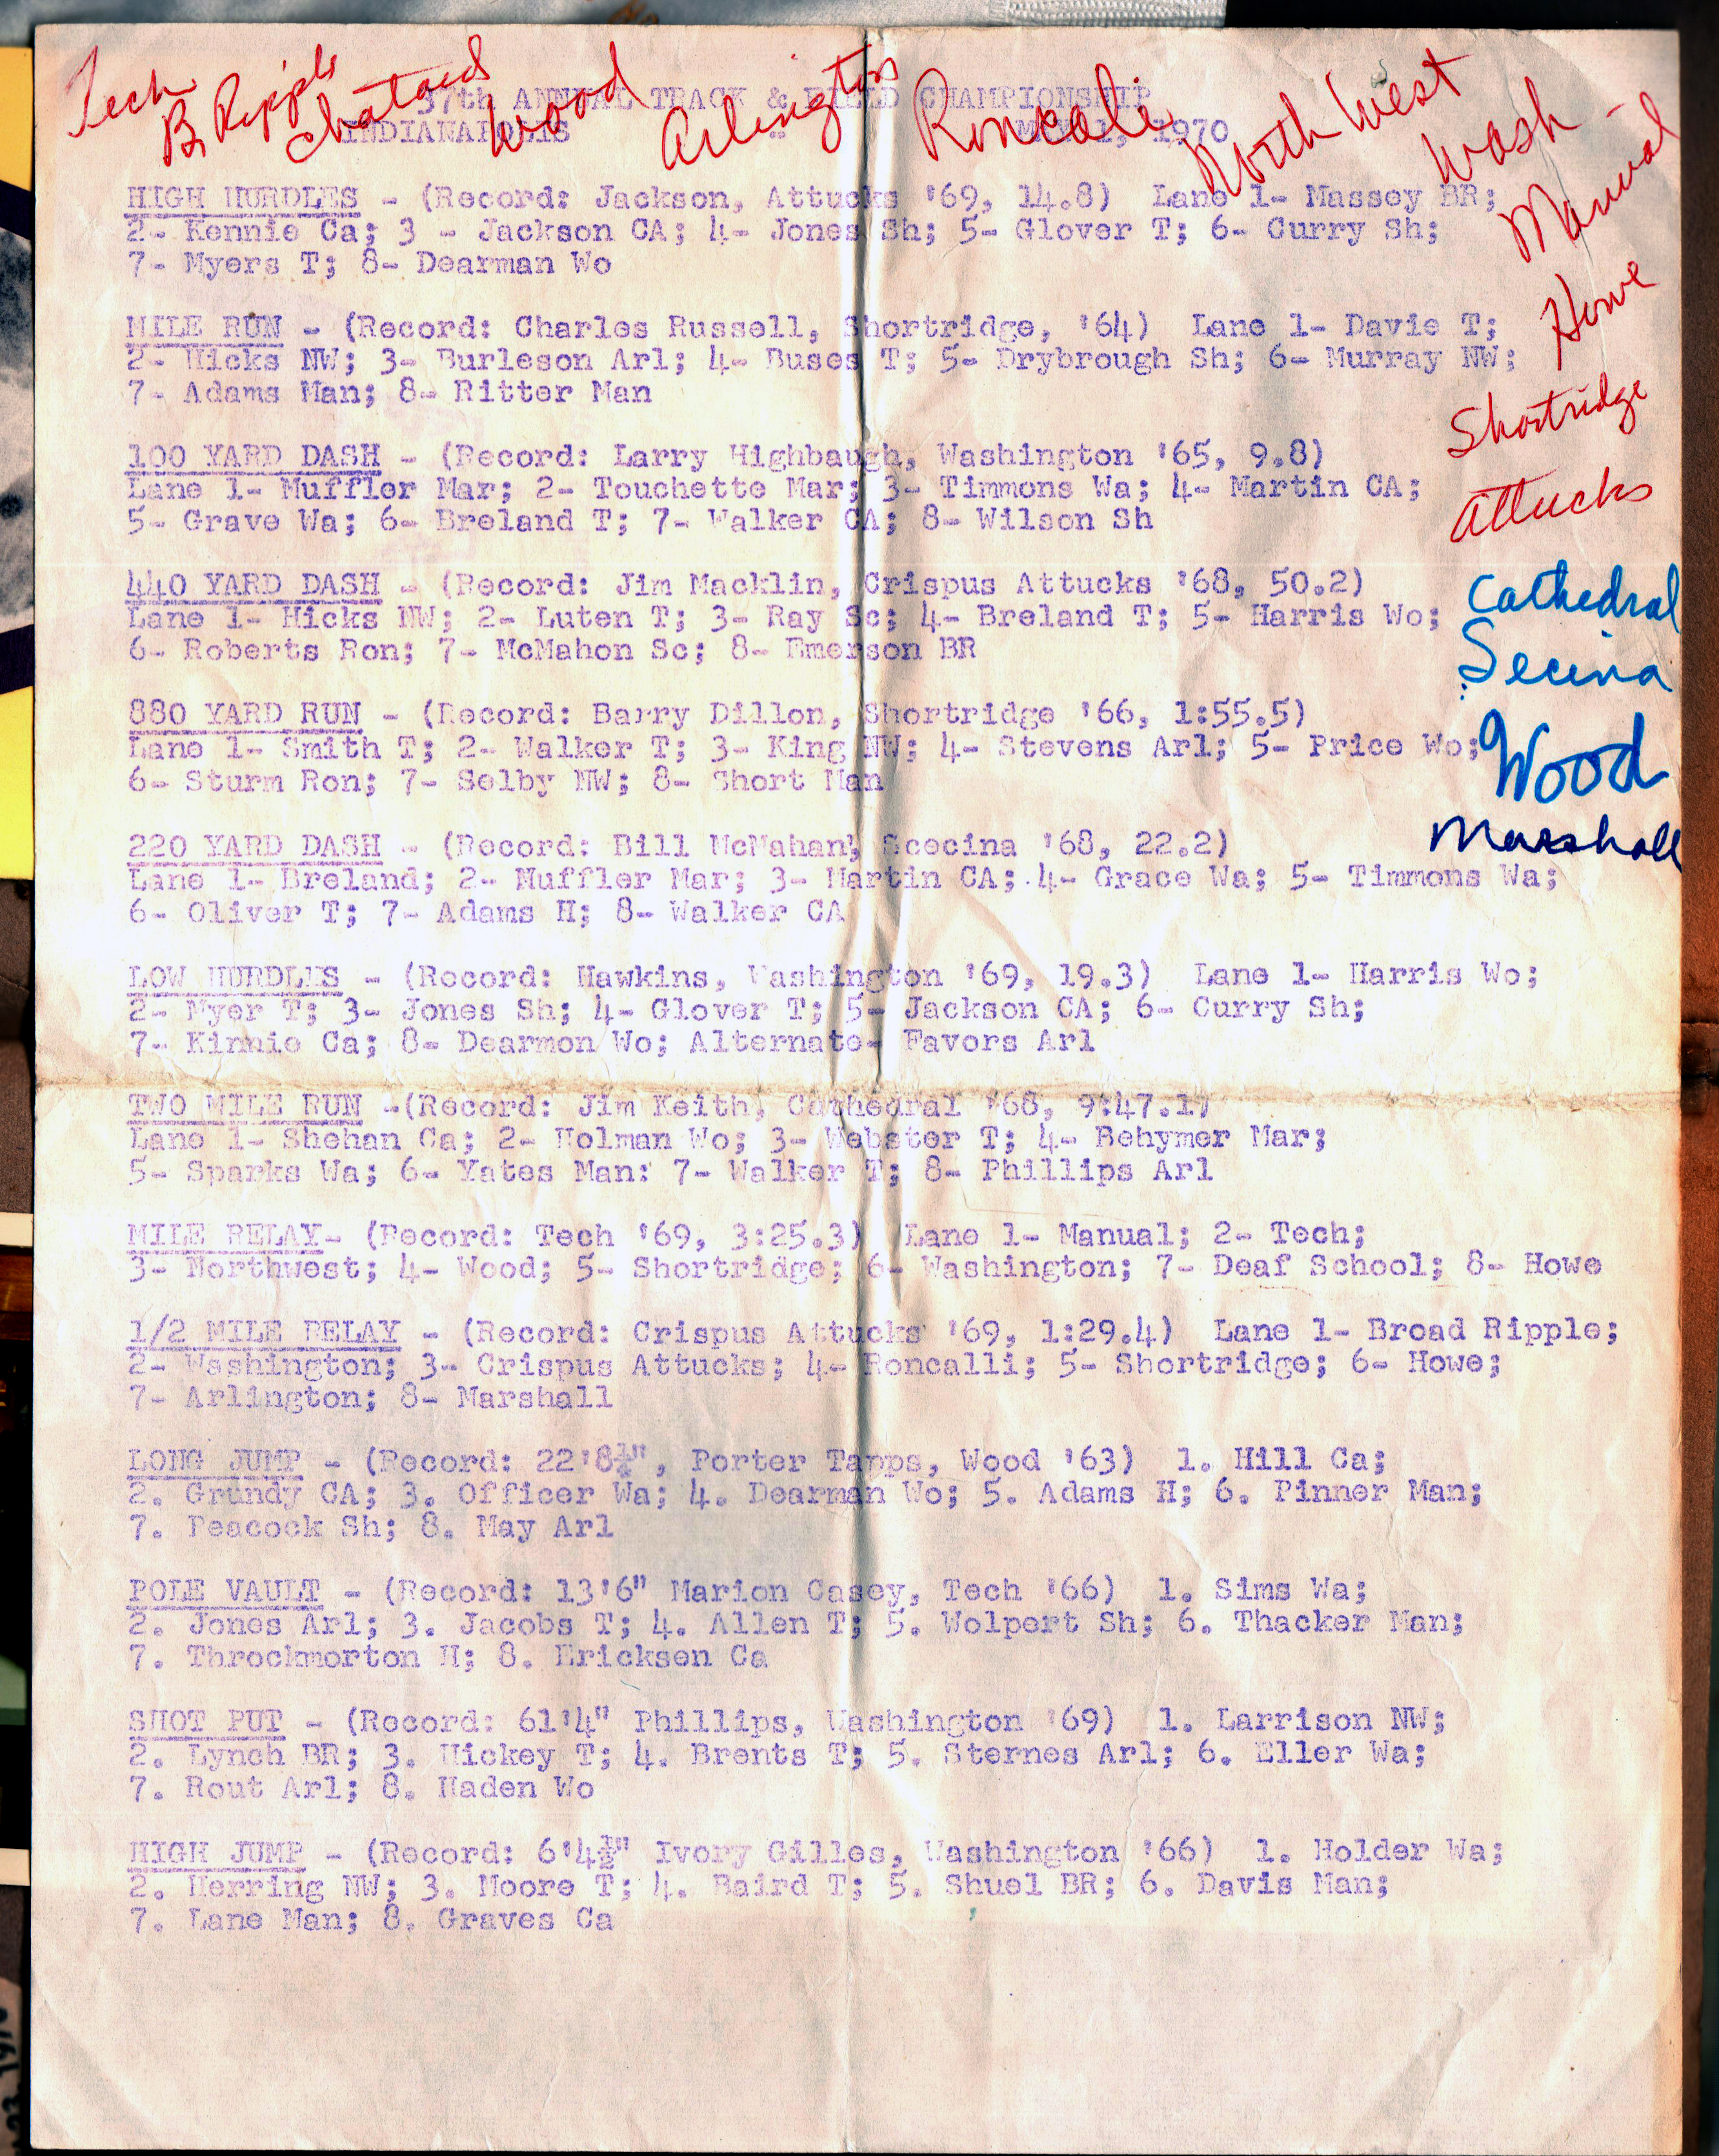 Tech
B. Ripple
Chatard
Wood
Arlington
Roncali
North West
Wash
Manual
Howe
Shortridge
Attucks
Cathedral
Secina
Wood
Marshall
37th ANNUAL TRACK & FIELD CHAMPIONSHIP
INDIANAPOLIS 1, 1970
HIGH HURDLES - (Record: Jackson, Attucks '69, 14.8) Lane 1- Massey BR;
2- Kennie Ca; 3 - Jackson CA; 4- Jones Sh; 5- Glover T; 6- Curry Sh;
7- Myers T; 8- Dearman Wo
MILE RUN - (Record: Charles Russell, Shortridge, '64) Lane 1- Davie T;
2- Hicks NW; 3- Burleson Arl; 4- Buses T; 5- Drybrough Sh; 6- Murray NW;
7- Adams Man; 8- Ritter Man
100 YARD DASH - (Record: Larry Highbaugh, Washington '65, 9.8)
Lane 1- Muffler Mar; 2- Touchette Mar; 3- Timmons Wa; 4- Martin CA;
5- Grave Wa; 6- Breland T; 7- Walker CA; 8- Wilson Sh
440 YARD DASH - (Record: Jim Macklin, Crispus Attucks '68, 50.2)
Lane 1- Hicks NW; 2- Luten T; 3- Ray Sc; 4- Breland T; 5- Harris Wo;
6- Roberts Ron; 7- McMahon Sc; 8- Emerson BR
880 YARD RUN - (Record: Barry Dillon, Shortridge '66, 1:55.5)
Lane 1- Smith T; 2- Walker T; 3- King NW; 4- Stevens Arl; 5- Price Wo;
6- Sturm Ron; 7- Selby NW; 8- Short Man
220 YARD DASH - (Record: Bill McMahan, Scecina '68, 22.2)
Lane 1- Breland; 2- Muffler Mar; 3- Martin CA; 4- Grace Wa; 5- Timmons Wa;
6- Oliver T; 7- Adams H; 8- Walker CA
LOW HURDLES - (Record: Hawkins, Washington '69, 19.3) Lane 1- Harris Wo;
2- Myer T; 3- Jones Sh; 4- Glover T; 5- Jackson CA; 6- Curry Sh;
7- Kinnie Ca; 8- Dearmon Wo; Alternate- Favors Arl
TWO MILE RUN -(Record: Jim Keith, Cathedral '68, 9:47.1)
Lane 1- Shehan Ca; 2- Holman Wo; 3- Webster T; 4- Behymer Mar;
5- Sparks Wa; 6- Yates Man: 7- Walker T; 8- Phillips Arl
MILE RELAY- (Record: Tech '69, 3:25.3) Lane 1- Manual; 2- Tech;
3- Northwest; 4- Wood; 5- Shortridge; 6- Washington; 7- Deaf School; 8- Howe
1/2 MILE RELAY - (Record: Crispus Attucks '69, 1:29.4) Lane 1- Broad Ripple;
2- Washington; 3- Crispus Attucks; 4- Roncalli; 5- Shortridge; 6- Howe;
7- Arlington; 8- Marshall
LONG JUMP - (Record: 22'8¼", Porter Tapps, Wood '63) 1. Hill Ca;
2. Grundy CA; 3. Officer Wa; 4. Dearman Wo; 5. Adams H; 6. Pinner Man;
7. Peacock Sh; 8. May Arl
POLE VAULT - (Record: 13'6" Marion Casey, Tech '66) 1. Sims Wa;
2. Jones Arl; 3. Jacobs T; 4. Allen T; 5. Wolpert Sh; 6. Thacker Man;
7. Throckmorton H; 8. Ericksen Ca
SHOT PUT - (Record: 61'4" Phillips, Washington '69) 1. Larrison NW;
2. Lynch BR; 3. Hickey T; 4. Brents T; 5. Sternes Arl; 6. Eller Wa;
7. Rout Arl; 8. Haden Wo
HIGH JUMP - (Record: 6'4½" Ivory Gilles, Washington '66) 1. Holder Wa;
2. Herring NW; 3. Moore T; 4. Baird T; 5. Shuel BR; 6. Davis Man;
7. Lane Man; 8. Graves Ca